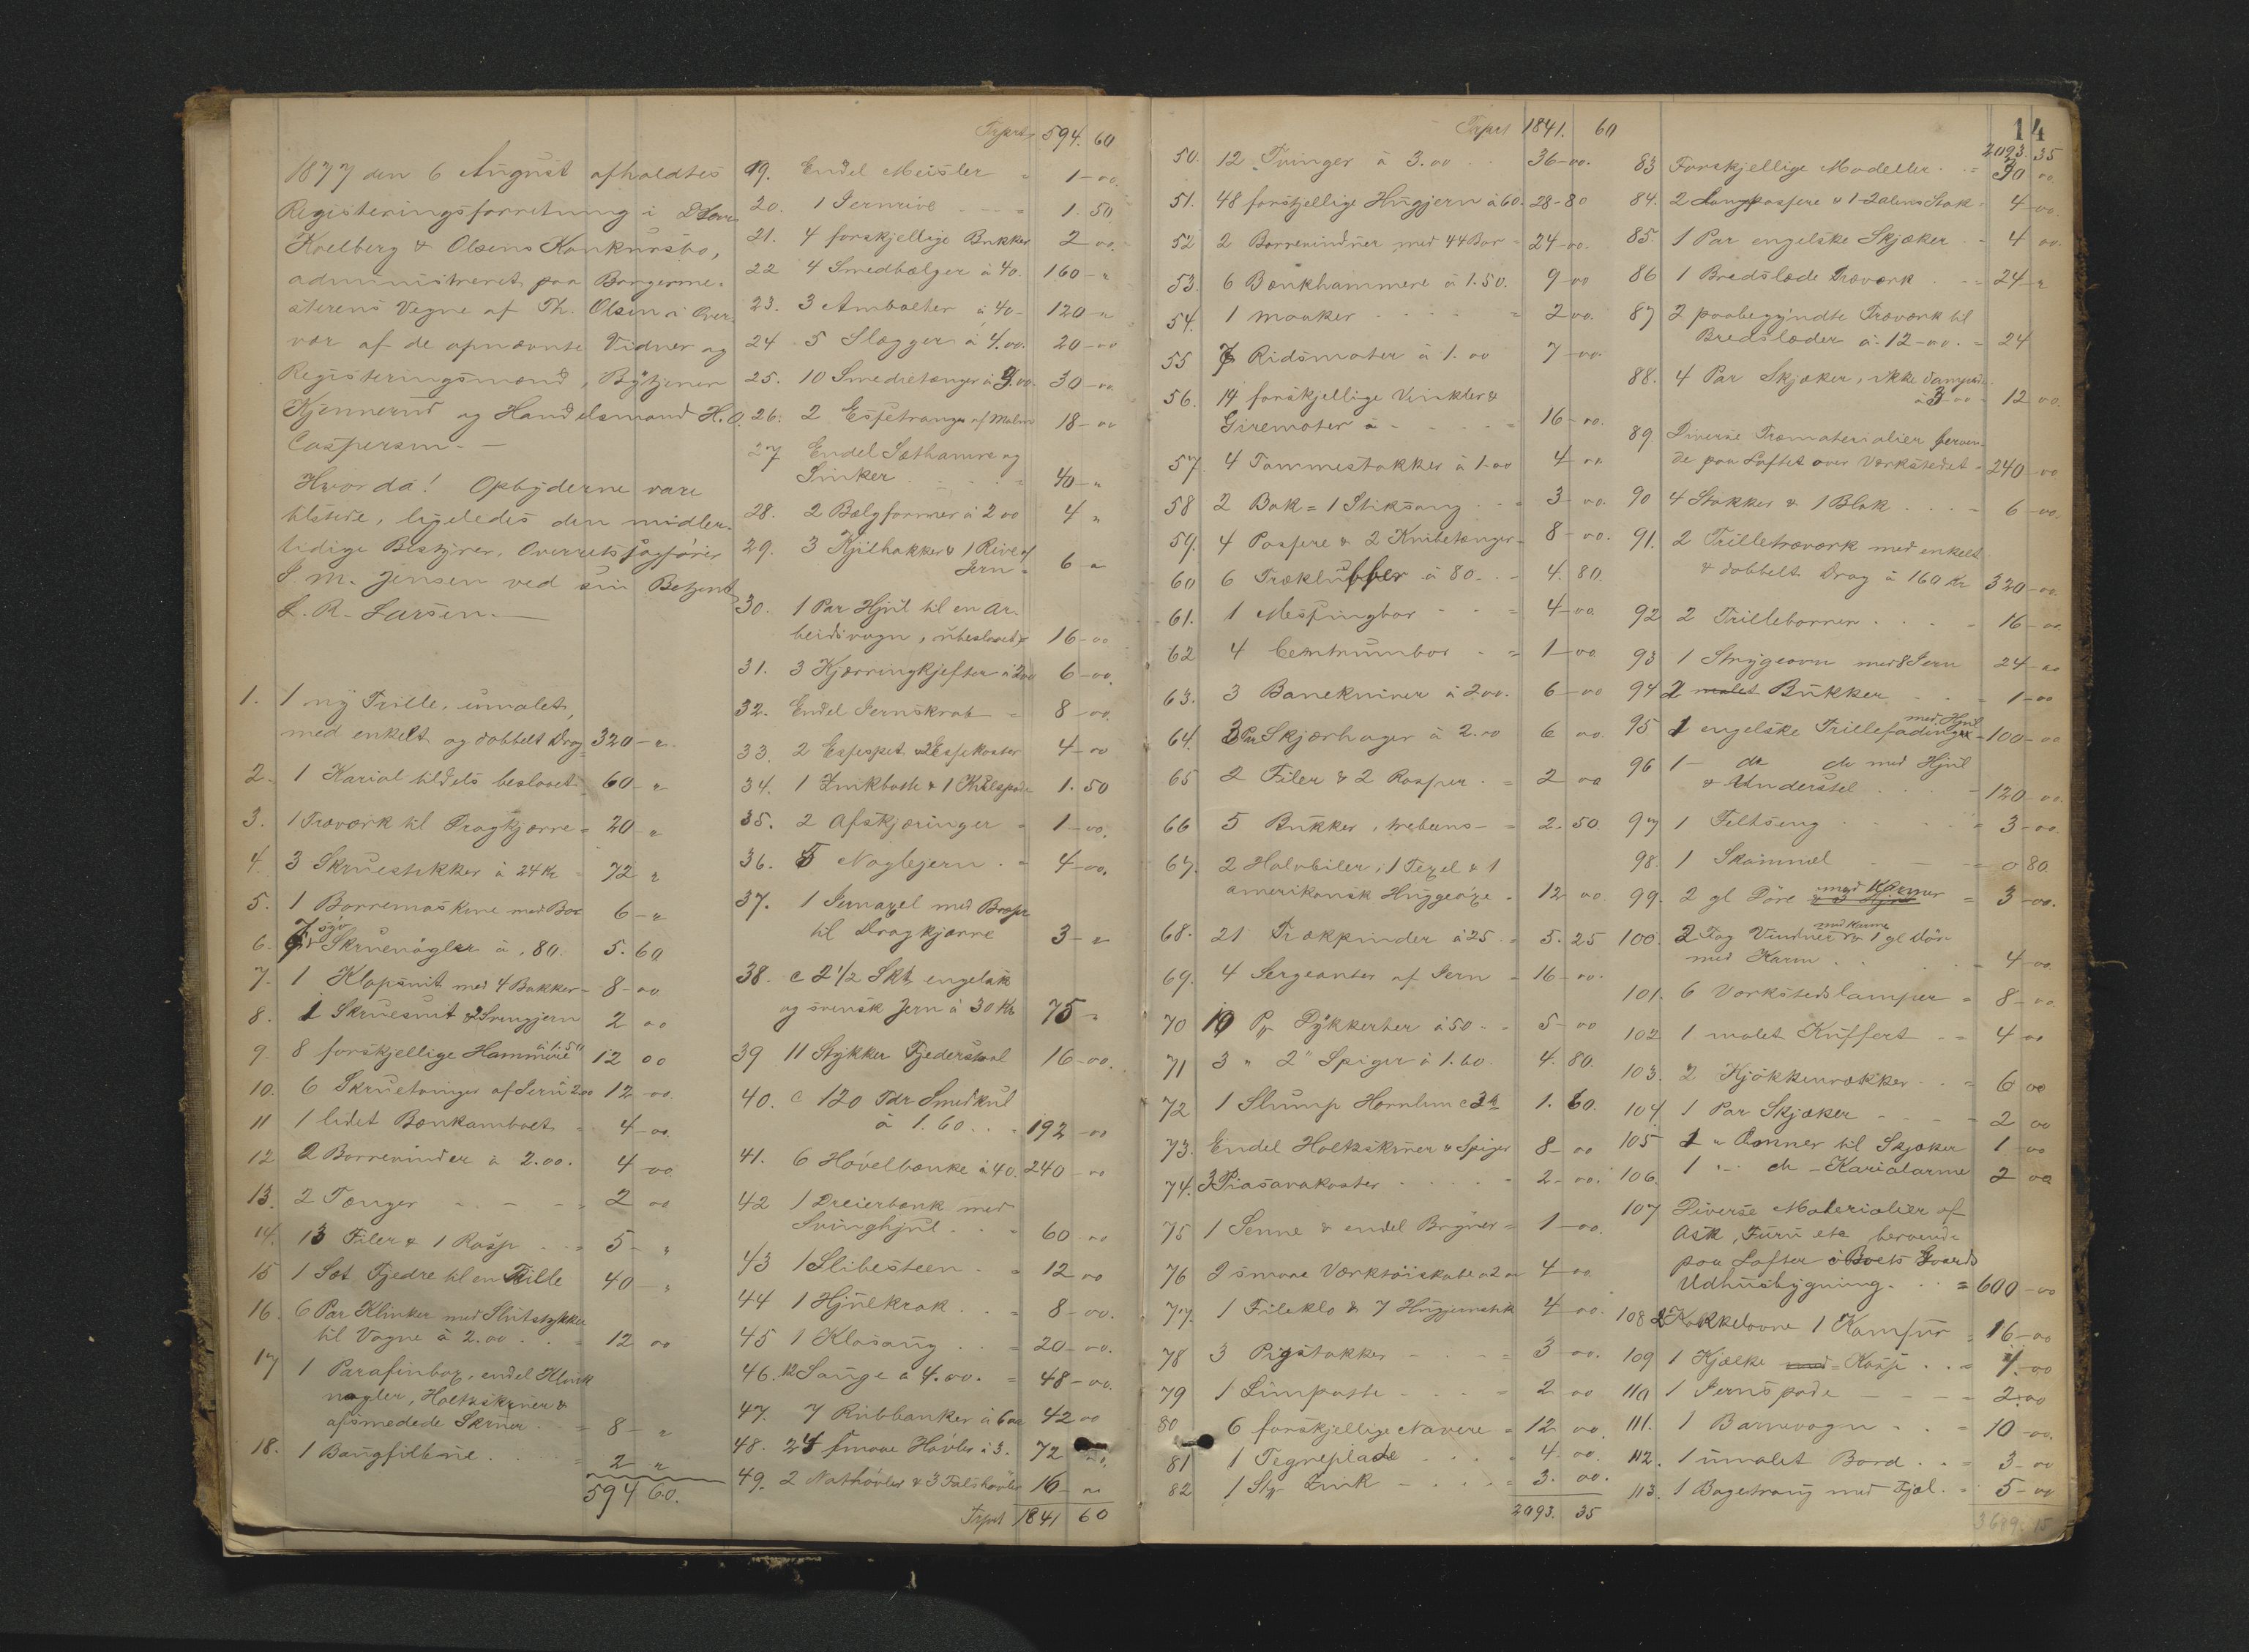 1877 den 6 August afholdtes
Registeringsforretning i
Kolberg & Olsens Konkursbo,
administreret paa Borgerme-
sterens Vegne af Th. Olsen i Over-
vær af de opnævnte Vidner og
Registeringsmænd, Bytjener
Kjennerud og Handelsmand H. O.
Caspersen. —
Hvorda! Opbyderne vare
tilstede, ligeledes den midler-
tidige Bestyrer, Overretssagfører
J. M. Jensen ved sin Betjent
L. R. Larsen. —
1. 1 ny Trille, umalet,
med enkelt og dobbelt Drag 320 - "
2. 1 Kariol tildels beslaaet 60 - "
3. 1 Træværk til Dragkjærre = 20 - "
4. 3 Skruestikker à 24 Kr = 72 "
5. 1 Borremaskine med Bor 6 - "
6. 7 Skruenøgler à ,80. 5. 60
7. 1 Klopsnit med 4 Bakker - 8 - 00
8. 1 Skruesnit & 2 Svingjern 2 00
9. 8 forskjellige Hammere à 1.50 12 00
10. 6 Skruetvinger af Jern 2.00 12 - 00.
11 1 lidet Bænkambolt = 4 - 00.
12 2 Borrevinder à 2.00. 4 00.
13. 2 Tænger - - - = 2 00
14. 13 Filer & 1 Rasp - = 5 - "
15 1 Sæt Fjedre til en Trille 40 - "
16. 6 Par Klinker med Slutstykker
til Vogne à 2.00 . . = 12 00
17 1 Parafinbox, endel Klink
nagler, Holtzskruer &
afsmedede Skruer. = 8 - "
18. 1 Baugfilbue . . = 2 "
594 60.
Trsprt 594. 60
19. Endel Meisler = 1 - 00.
20. 1 Jernrive - - = 1. 50
21. 4 forskjellige Bukker 2 00.
22 4 Smedbælger à 40. 160 - "
23. 3 Ambolter à 40 - 120 - "
24 5 Slægger à 4.00. 20 - 00
25. 10 Smedietænger à 3.00. 30 - 00.
26. 2 af Malm 18 - 00
27 Endel Sæthamre og
Sinker . . . = 40 - "
28. 2 Bælgformer à 2 00 4 "
29. 3 Kjilhakker & 1 Rive af
Jern = 6 - "
30. 1 Par Hjul til en Ar-
beidsvogn, ubeslaaet 16 - 00
31. 3 Kjærringkjefter à 2.00 6 - 00.
32. Endel Jernskrab = 8 - 00.
33. 2 Espespet & 2 Espekoster 4 - 00
34. 1 Zinkbøtte & 1 Kulspade 1. 50
35. 2 Afskjæringer = 1 - 00.
36. 5 Naglejern . = 4 - 00.
37. 1 Jernaxel med
til Dragkjærre 3 - "
38. c 2 1/2 Skb engelsk
og svensk Jern à 30 Kr 75 - "
39 11 Stykker Fjederstaal 16 - 00.
40. c 120 Tdr Smedkul
à 1.60 . . = 192 - 00
41. 6 Høvelbænke à 40. 240 - 00
42 1 Dreierbænk med
Svinghjul . . = 60 00
43 1 Slibesteen . = 12 00
44 1 Hjulkrak . . = 8 - 00.
45 1 Klosaug . . = 20 - 00.
46. 12 Sauge à 4.00. = 48 - 00.
47. 7 Rubbanker à 6 00 42 00
48. 24 smaae Høvler à 3. 72
49. 2 Nathøvler & 3 Falshøvler 16 - 00
Trsprt 1841 60
Trsprt 1841. 60
50. 12 Tvinger à 3.00 . . 36 - 00.
51. 48 forskjellige Hugjern à 60. 28 - 80
52 2 Borrevinduer med 44 Bor = 24 - 00.
53. 6 Bænkhammere à 1.50. 9 - 00
54. 1 - - - = 2 00.
55 7 Ridsmater à 1.00 7 - 00.
56. 14 forskjellige Vinkler &
Giremater à - - - = 16 - 00.
57 4 Tommestokker à 1.00 4 00
58 2 Bak = 1 Stiksaug . . = 3 - 00.
59. 4 Passere & 2 Knibetænger = 8 - 00.
60 6 Træklubber à 80 - - 4. 80.
61. 1 Messingbor - - = 4 - 00.
62 4 Centrumbor - = 1 - 00
63. 3 Banekniver à 2 00. 6 - 00
64. 3 Par Skjærhager à 2.00 6 00.
65 2 Filer & 2 Rasper . = 2 00
66 5 Bukker, trebens - = 2. 50.
67. 2 Halvbiler, 1 Texel & 1
amerikansk Huggeøxe . = 12 00
68. 21 Trækpinder à 25 . = 5. 25
69. 4 Sergeanter af Jern - 16 - 00.
70 10 Pr Dykkerter à 50 . - 5 - 00
71 3 " 2" Spiger à 1.60. 4. 80.
72 1 Slump Hornlim c 3 1. 60.
73. Endel Holtzskruer & Spiger 8 - 00
74. 3 Piasavakoster . . . . - 2 - 00.
75 1 Senne & endel Bryner = 1 - 00.
76 2 smaae Værktøiskabe à 2 00 4 00.
77. 1 Fileklo & 7 Hugjernstik 4 - 00.
78 3 Pigstokker - . - = 3 - 00.
79 1 Limpotte . . . = 2 00
80 6 forskjellige Navere = 12 00.
81 1 Tegneplade . . . . 4 - 00.
82 1 Stk Zink - . . . = 3. 00.
2093. 35
14
2093 35
83 Forskjellige Modeller . . = 30 00.
84. 2 Langpassere & 1 2 alens Stok = 4 - 00.
85. 1 Par engelske Skjæker . - 4 00
86 1 Bredslæde Træværk . - = 24 - "
87 2 paabegyndte Træværk til
Bredslæder à 12 - 00. = 24
88. 4 Par Skjæker, ikke dampede
à 3 - 00 = 12 00.
89. Diverse Træmaterialier beroen-
de paa Loftet over Værkstedet . 240 - 00
90 4 Stokker & 1 Blok . . . = 6 - 00.
91. 2 Trilletræværk med enkelt
& dobbelt Drag à 160 Kr 320 - 00.
92 2 Trillebørrer . . . - 16 - 00.
93 1 Strygeovn med 8 Jern 24 - 00
94 2 Bukker - - = 1 - 00
95 1 engelske Trillefadinger med Hjul - 100 - 00
96 1 - do do med Hjul
& Understel . . . - 120 - 00.
97 1 Feltseng . . . . = 3 - 00.
98. 1 Skammel - - - = 0 80.
99. 2 gl Døre med Karmer = 3 - 00.
100. 2 Fag Vinduer med Karme & 1 gl Dør
med Karm . . . . = 4 - 00.
101. 6 Værkstedslamper = 8 - 00.
102 1 malet Kuffert . - = 4 00
103. 2 Kjøkkenrækker . . = 6 00
104. 1 Par Skjæker . - - - 2 00
105 1 " Emner til Skjæker 1 - 00
106. 1 " do - Kariolarme 2 00
107 Diverse Materialier af
Ask, Furu etc beroende
paa Lofter i Boets Gaards
Udhusbygning . . . = 600 - 00
108 2 Kakkelovne 1 Komfur = 16 - 00
109 1 Kjælke = Kasse . . = 4 - 00
110 1 Jernspade - - - - 2 - 00
111. 1 Barnevogn . - = 10 - 00.
112. 1 umalet Bord . . = 3 - 00
113. 1 Bagetraug med Fjæl . = 5 - 00
3689. 15